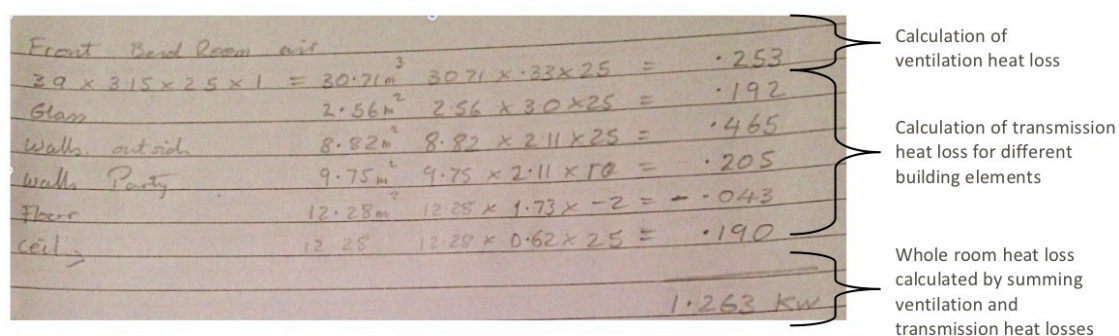 Front Bend Room air
3.9 x 3.15 x 2.5 x 1 = 30.71m³ 30.71 x .33 x 25 = .253
Glass 2.56m² 2.56 x 3.0 x 25 = .192
Walls outside 8.82m² 8.82 x 2.11 x 25 = .465
Walls Party 9.75m² 9.75 x 2.11 x 10 = .205
Floor 12.28m² 12.28 x 1.73 x -2 = -.043
Ceil 12.28 12.28 x 0.62 x 25 = .190
1.263 KW
Calculation of
ventilation heat loss
Calculation of transmission
heat loss for different
building elements
Whole room heat loss
calculated by summing
ventilation and
transmission heat losses